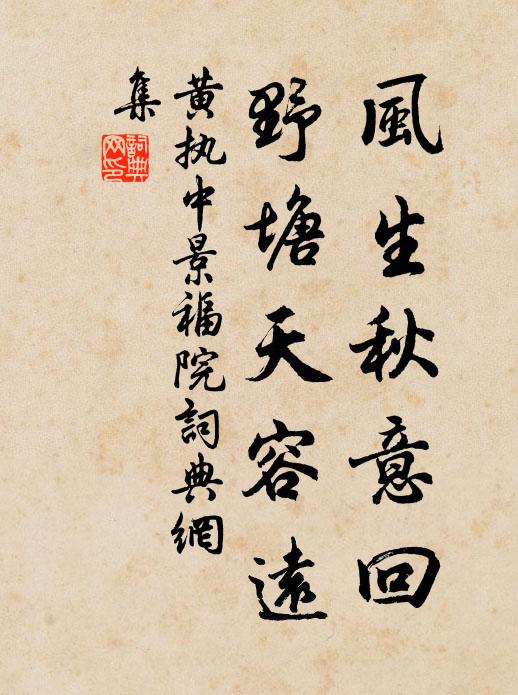 風生秋意回
野塘天容遠
黄执中景福院詞典網
集
詞典
网印